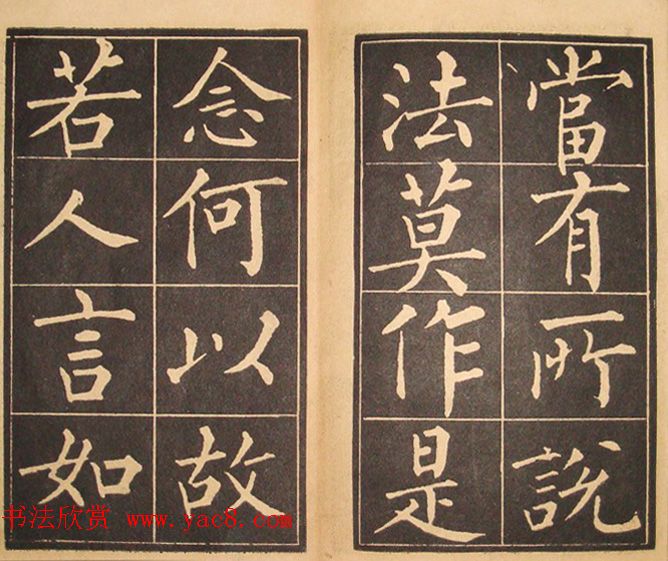 當有所說
法莫作是
念何以故
若人言如
书法欣赏 www.yac8.com